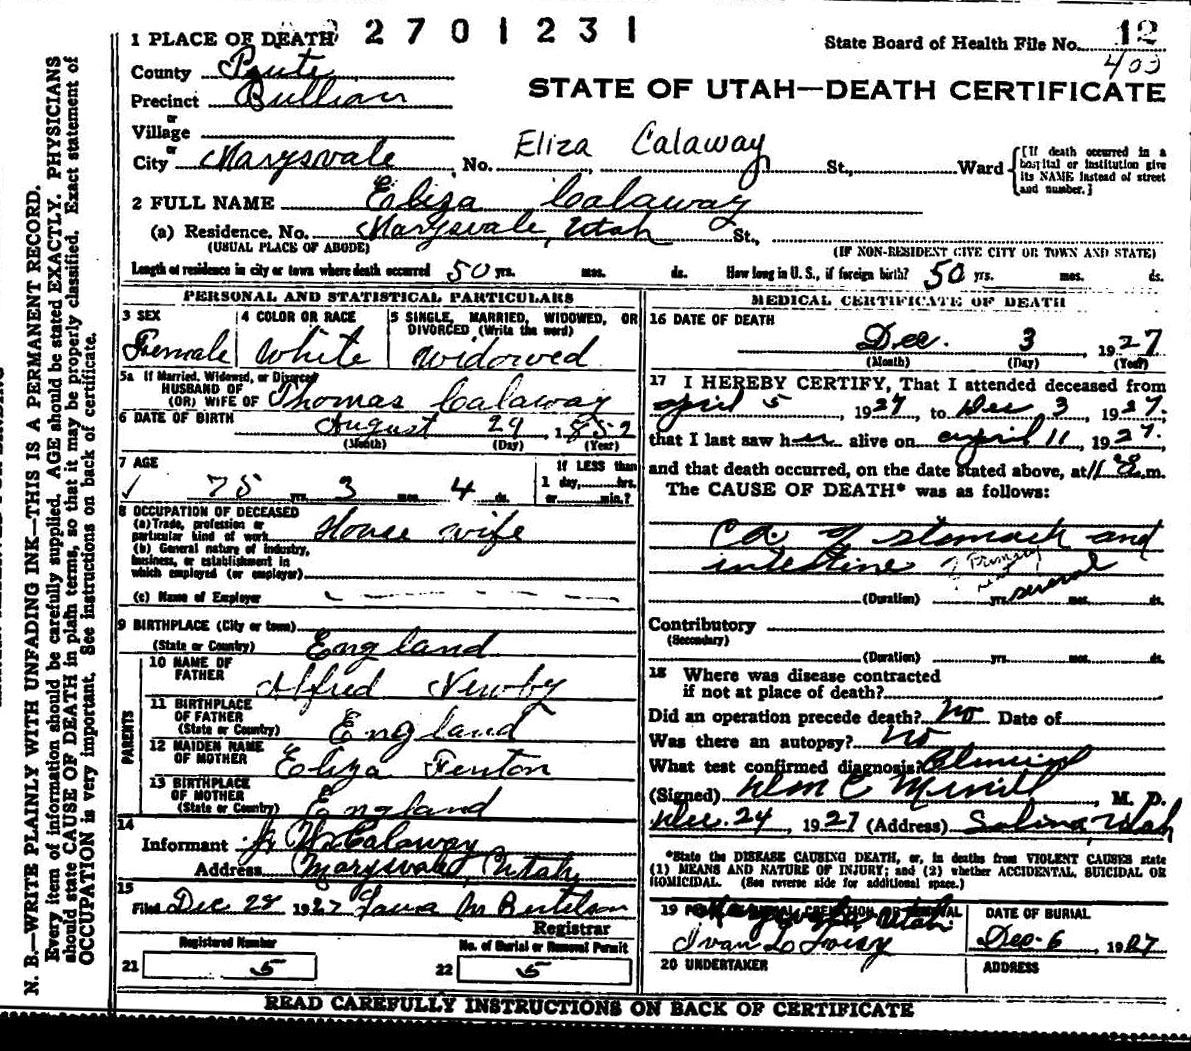 2701231
State Board of Health File No. 12
403
1 PLACE OF DEATH
County Piute
STATE OF UTAH—DEATH CERTIFICATE
Precinct Bullion
or
Village
or
City Marysvale, No. Eliza Calaway St., Ward
[If death occurred in a
hospital or institution give
its NAME instead of street
and number.]
2 FULL NAME Eliza Calaway
(a) Residence. No. Marysvale, Utah St.,
(USUAL PLACE OF ABODE) (IF NON-RESIDENT GIVE CITY OR TOWN AND STATE)
Length of residence in city or town where death occurred 50 yrs. mos. ds. How long in U. S., if foreign birth? 50 yrs. mos. ds.
PERSONAL AND STATISTICAL PARTICULARS
3 SEX
Female
4 COLOR OR RACE
White
5 SINGLE, MARRIED, WIDOWED, OR
DIVORCED (Write the word)
Widowed
5a If Married, Widowed, or Divorced
HUSBAND OF
(OR) WIFE OF Thomas Calaway
6 DATE OF BIRTH August 29, 1852
(Month) (Day) (Year)
7 AGE
75 yrs. 3 mos. 4 ds.
If LESS than
1 day, hrs.
or min.?
8 OCCUPATION OF DECEASED
(a) Trade, profession or
particular kind of work House wife
(b) General nature of industry,
business, or establishment in
which employed (or employer)
(c) Name of Employer
9 BIRTHPLACE (City or town)
(State or Country) England
PARENTS
10 NAME OF
FATHER Alfred Newby
11 BIRTHPLACE
OF FATHER
(State or Country) England
12 MAIDEN NAME
OF MOTHER Eliza Fenton
13 BIRTHPLACE
OF MOTHER
(State or Country) England
14
Informant Calaway
Address Marysvale, Utah
15
Filed Dec 28 1927 Laura M Bertelson
Registrar
Registered Number
21 5
No. of Burial or Removal Permit
22 5
MEDICAL CERTIFICATE OF DEATH
16 DATE OF DEATH
Dec. 3, 1927
(Month) (Day) (Year)
17 I HEREBY CERTIFY, That I attended deceased from
april 5, 1927, to Dec 3, 1927,
that I last saw her alive on april 11, 1927.
and that death occurred, on the date stated above, at m.
The CAUSE OF DEATH* was as follows:
Ca. of stomach and
intestine
? Primary
(Duration) yrs. several mos. ds.
Contributory
(Secondary)
(Duration) yrs. mos. ds.
18 Where was disease contracted
if not at place of death?
Did an operation precede death? No Date of
Was there an autopsy? No
What test confirmed diagnosis? Clinical
(Signed) Wm E Merrill, M. D.
Dec. 24, 1927 (Address) Salina, Utah
*State the DISEASE CAUSING DEATH, or, in deaths from VIOLENT CAUSES state
(1) MEANS AND NATURE OF INJURY; and (2) whether ACCIDENTAL, SUICIDAL OR
HOMICIDAL. (See reverse side for additional space.)
19 Marysvale Utah
DATE OF BURIAL
Dec-6, 1927
Ivan L
20 UNDERTAKER
ADDRESS
READ CAREFULLY INSTRUCTIONS ON BACK OF CERTIFICATE
N. B.—WRITE PLAINLY WITH UNFADING INK—THIS IS A PERMANENT RECORD.
Every item of information should be carefully supplied. AGE should be stated EXACTLY. PHYSICIANS
should state CAUSE OF DEATH in plain terms, so that it may be properly classified. Exact statement of
OCCUPATION is very important. See instructions on back of certificate.